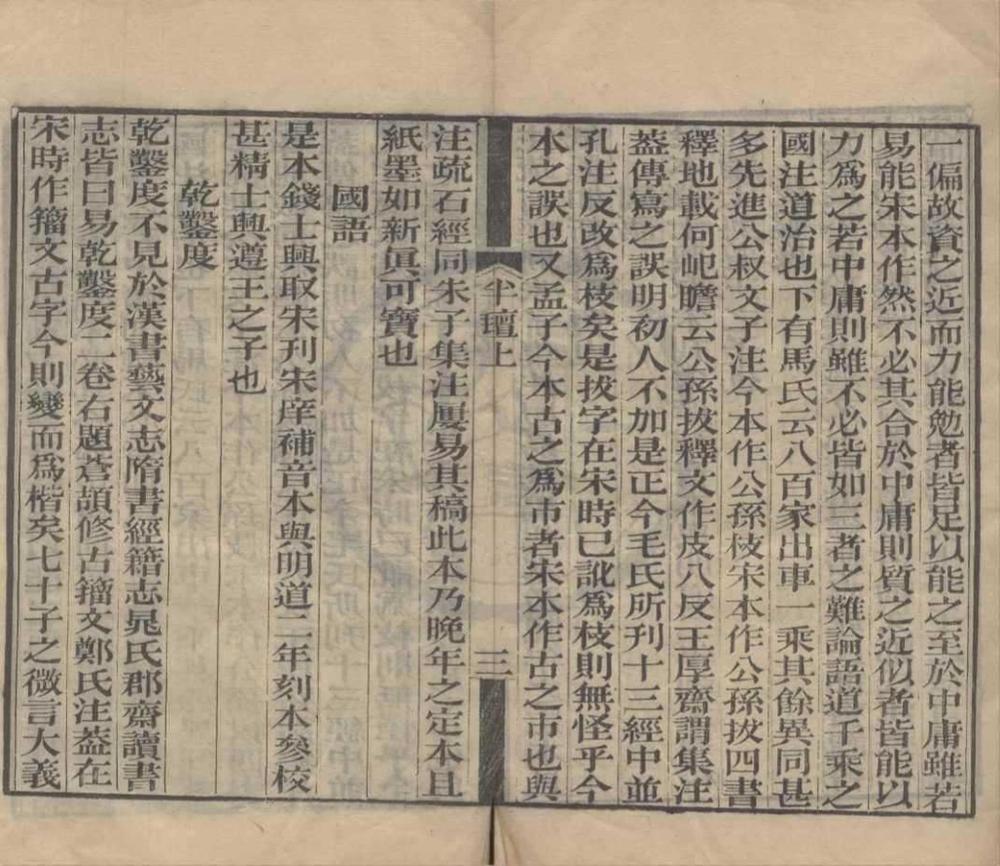 一偏故資之近而力能勉者皆足以能之至於中庸雖若
易能宋本作然不必其合於中庸則質之近似者皆能以
力爲之若中庸則雖不必皆如三者之難論語道千乘之
國注道治也下有馬氏云八百家出車一乘其餘異同甚
多先進公叔文子注今本作公孫枝宋本作公孫拔四書
釋地載何屺瞻云公孫拔釋文作皮八反王厚齋謂集注
蓋傳寫之誤明初人不加是正今毛氏所刊十三經中並
孔注反改爲枝矣是拔字在宋時已訛爲枝則無怪乎今
本之誤也又孟子今本古之爲市者宋本作古之市也與
上
三
注疏石經同朱子集注屢易其稿此本乃晚年之定本且
紙墨如新眞可寶也
國語
是本錢士興取宋刊宋庠補音本與明道二年刻本參校
甚精士興遵王之子也
乾鑿度
乾鑿度不見於漢書藝文志隋書經籍志晁氏郡齋讀書
志皆曰易乾鑿度二卷右題蒼頡修古籀文鄭氏注葢在
宋時作籀文古字今則變而爲楷矣七十子之微言大義